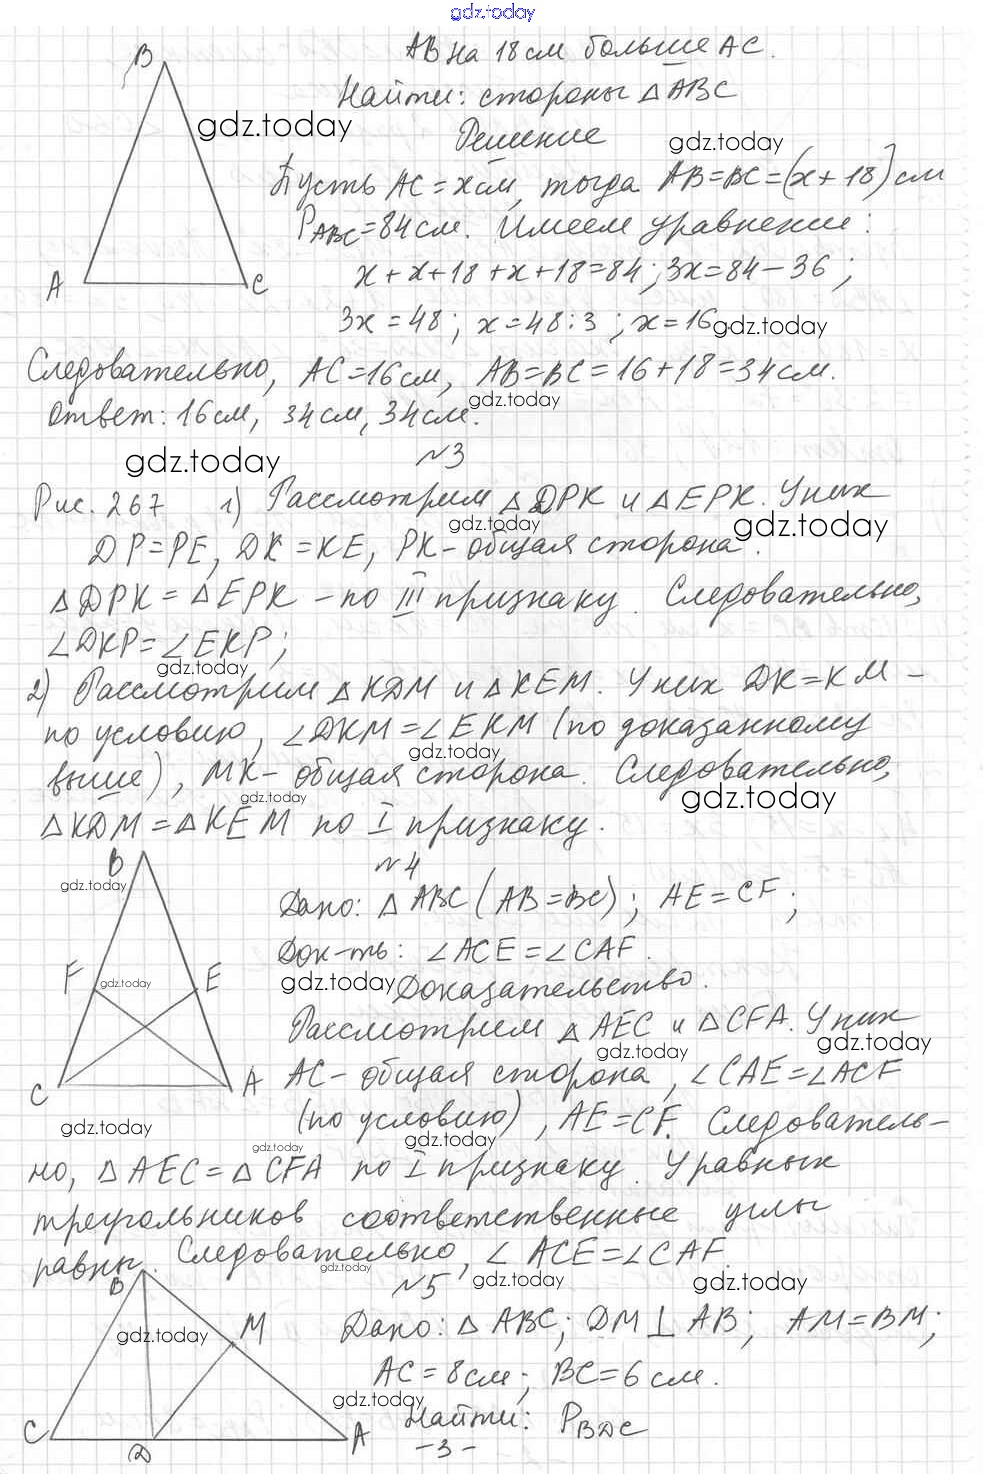 gdz.today
B
AB на 18 см больше AC.
Найти: стороны △ABC
gdz.today
Решение
gdz.today
Пусть AC = x см, тогда AB=BC=(x+18) см
P_ABC=84 см. Имеем уравнение:
x+x+18+x+18=84; 3x=84-36;
A C
3x=48; x=48:3; x=16.
gdz.today
Следовательно, AC=16 см, AB=BC=16+18=34 см.
gdz.today
Ответ: 16 см, 34 см, 34 см.
№3
gdz.today
Рис. 267 1) Рассмотрим △DPK и △EPK. У них
gdz.today gdz.today
DP=PE, DK=KE, PK- общая сторона.
△DPK=△EPK -по III признаку. Следовательно,
∠DKP=∠EKP;
gdz.today
2) Рассмотрим △KDM и △KEM. У них DK=KM -
по условию, ∠DKM=∠EKM (по доказанному
gdz.today
выше), MK- общая сторона. Следовательно,
gdz.today gdz.today
△KDM=△KEM по I признаку.
№4
B
gdz.today
Дано: △ABC (AB=BC); AE=CF;
Док-ть: ∠ACE=∠CAF.
F gdz.today E
gdz.today
Доказательство.
Рассмотрим △AEC и △CFA. У них
gdz.today gdz.today
C A
AC- общая сторона, ∠CAE=∠ACF
(по условию), AE=CF. Следователь-
gdz.today gdz.today
gdz.today
но, △AEC=△CFA по I признаку. У равных
треугольников соответственные углы
равны. Следовательно, ∠ACE=∠CAF.
gdz.today
№5
gdz.today gdz.today
B
gdz.today
M
Дано: △ABC; DM⊥AB; AM=BM;
AC=8 см; BC=6 см.
gdz.today
Найти: P_BDC
C D A
-3-